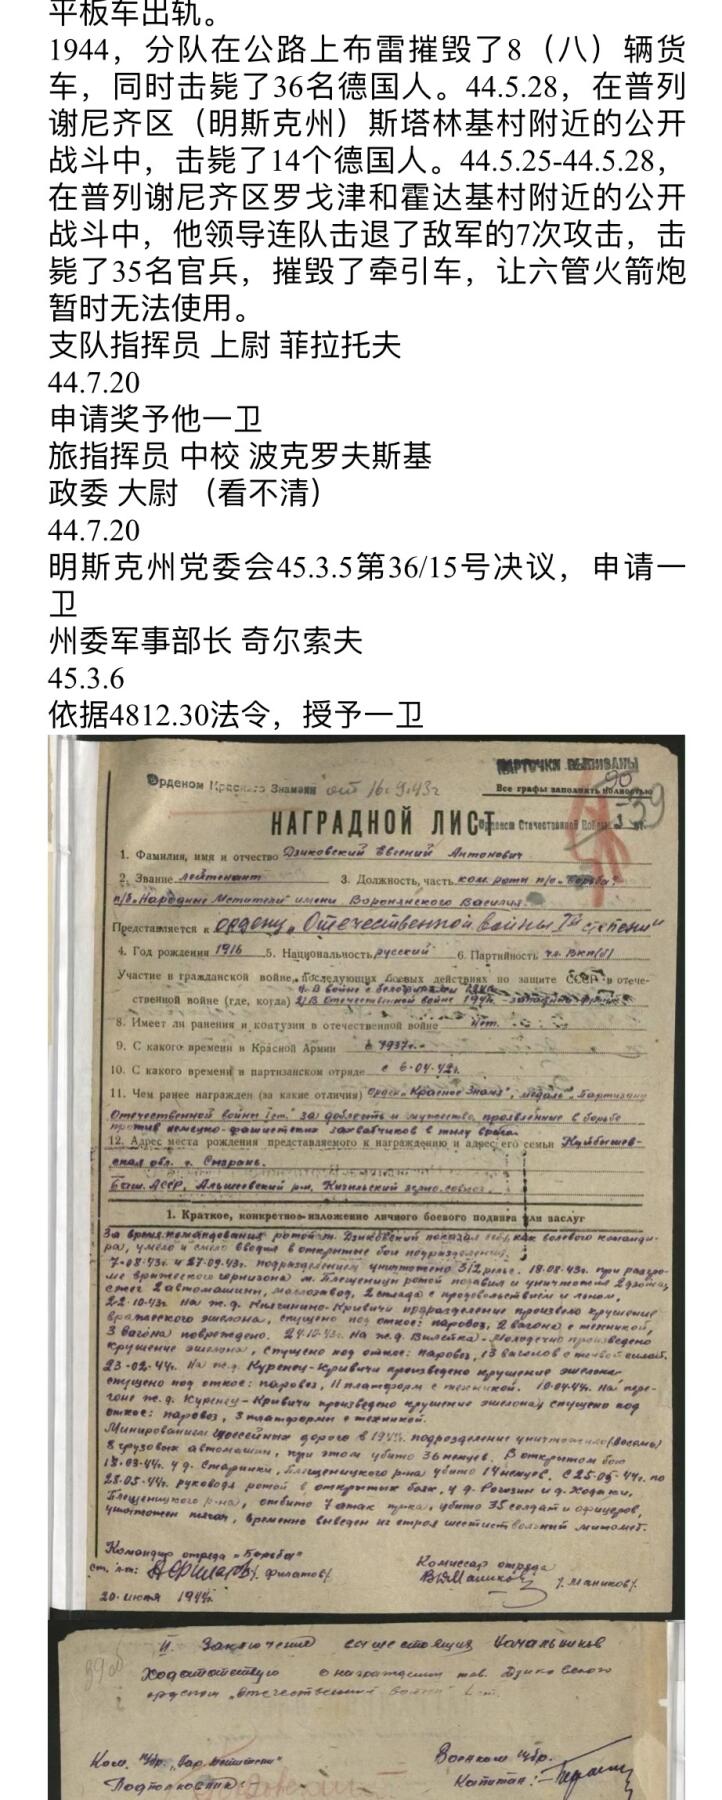 平板车出轨。
1944，分队在公路上布雷摧毁了8（八）辆货
车，同时击毙了36名德国人。44.5.28，在普列
谢尼齐区（明斯克州）斯塔林基村附近的公开
战斗中，击毙了14个德国人。44.5.25-44.5.28，
在普列谢尼齐区罗戈津和霍达基村附近的公开
战斗中，他领导连队击退了敌军的7次攻击，击
毙了35名官兵，摧毁了牵引车，让六管火箭炮
暂时无法使用。
支队指挥员 上尉 菲拉托夫
44.7.20
申请奖予他一卫
旅指挥员 中校 波克罗夫斯基
政委 大尉 （看不清）
44.7.20
明斯克州党委会45.3.5第36/15号决议，申请一
卫
州委军事部长 奇尔索夫
45.3.6
依据4812.30法令，授予一卫
Орденом Красного Знамени от 16.9.43г
Все графы заполнять полностью
НАГРАДНОЙ ЛИСТ
1. Фамилия, имя и отчество Дзиковский Евгений Антонович
2. Звание лейтенант 3. Должность, часть ком. роты п/о "Борьба"
п/б "Народные Мстители" имени Воронянского Василия.
Представляется к ордену "Отечественной войны Iой степени"
4. Год рождения 1916 5. Национальность русский 6. Партийность чл. ВКП(б)
Участие в гражданской войне, последующих боевых действиях по защите СССР в отече-
ственной войне (где, когда) 2) В Отечественной войне 1941г.
8. Имеет ли ранения и контузии в отечественной войне Нет.
9. С какого времени в Красной Армии с 1937г.
10. С какого времени в партизанском отряде с 6-04-42г.
11. Чем ранее награжден (за какие отличия) орден "Красное Знамя", медаль "Партизану
Отечественной войны Iст." за доблесть и мужество, проявленные в борьбе
против немецко-фашистских захватчиков в тылу врага.
12. Адрес места рождения представляемого к награждению и адрес его семьи Куйбышев-
ская обл. г. Сызрань.
Баш. АССР, Альшеевский р-н, зерносовхоз.
1. Краткое, конкретное изложение личного боевого подвига или заслуг
За время командования ротой т. Дзиковский показал себя, как волевого команди-
ра, умело и смело вводил в открытые бои подразделение.
7-08-43г и 27-09-43г. подразделением уничтожено 312 рельс. 18.08.43г. при разгро-
ме вражеского гарнизона м. Плещеницы ротой подавил и уничтожил 2 дзота,
сжег 2 автомашины, маслозавод, 2 склада с продовольствием и льном.
22-10-43г. На ж.д. Княгинино-Кривичи подразделение произвело крушение
вражеского эшелона, спущено под откос: паровоз, 2 вагона с техникой,
3 вагона повреждено. 24-10-43г. На ж.д. Вилейка-Молодечно произведено
крушение эшелона, спущено под откос: паровоз, 13 вагонов с живой силой.
23-02-44г. На ж.д. Куренец-Кривичи произведено крушение эшелона,
спущено под откос: паровоз, 11 платформ с техникой. 10-04-44г. На пере-
гоне ж.д. Куренец-Кривичи произведено крушение эшелона, спущено под
откос: паровоз, 3 платформы с техникой.
Минированием шоссейных дорог в 1944г. подразделение уничтожило (восемь)
8 грузовых автомашин, при этом убито 36 немцев. В открытом бою
у д. Старинки, Плещеницкого р-на убито 14 немцев. С 25-05-44г. по
28.05-44г. руководя ротой в открытых боях, у д. Рогозин и д. Ходаки,
Плещеницкого р-на, отбито 7 атак врага, убито 35 солдат и офицеров,
уничтожен тягач, временно выведен из строя шестиствольный миномет.
Командир отряда "Борьба"
Комиссар отряда
ст. л-т: /Филатов/
/Маников/
20 июля 1944г.
II. Заключение вышестоящих начальников
Ходатайствую о награждении тов. Дзиковского
орденом "Отечественной войны" I ст.
Ком. п/бр. "Нар. мстители"
Военком п/бр.
Подполковник:
Капитан: